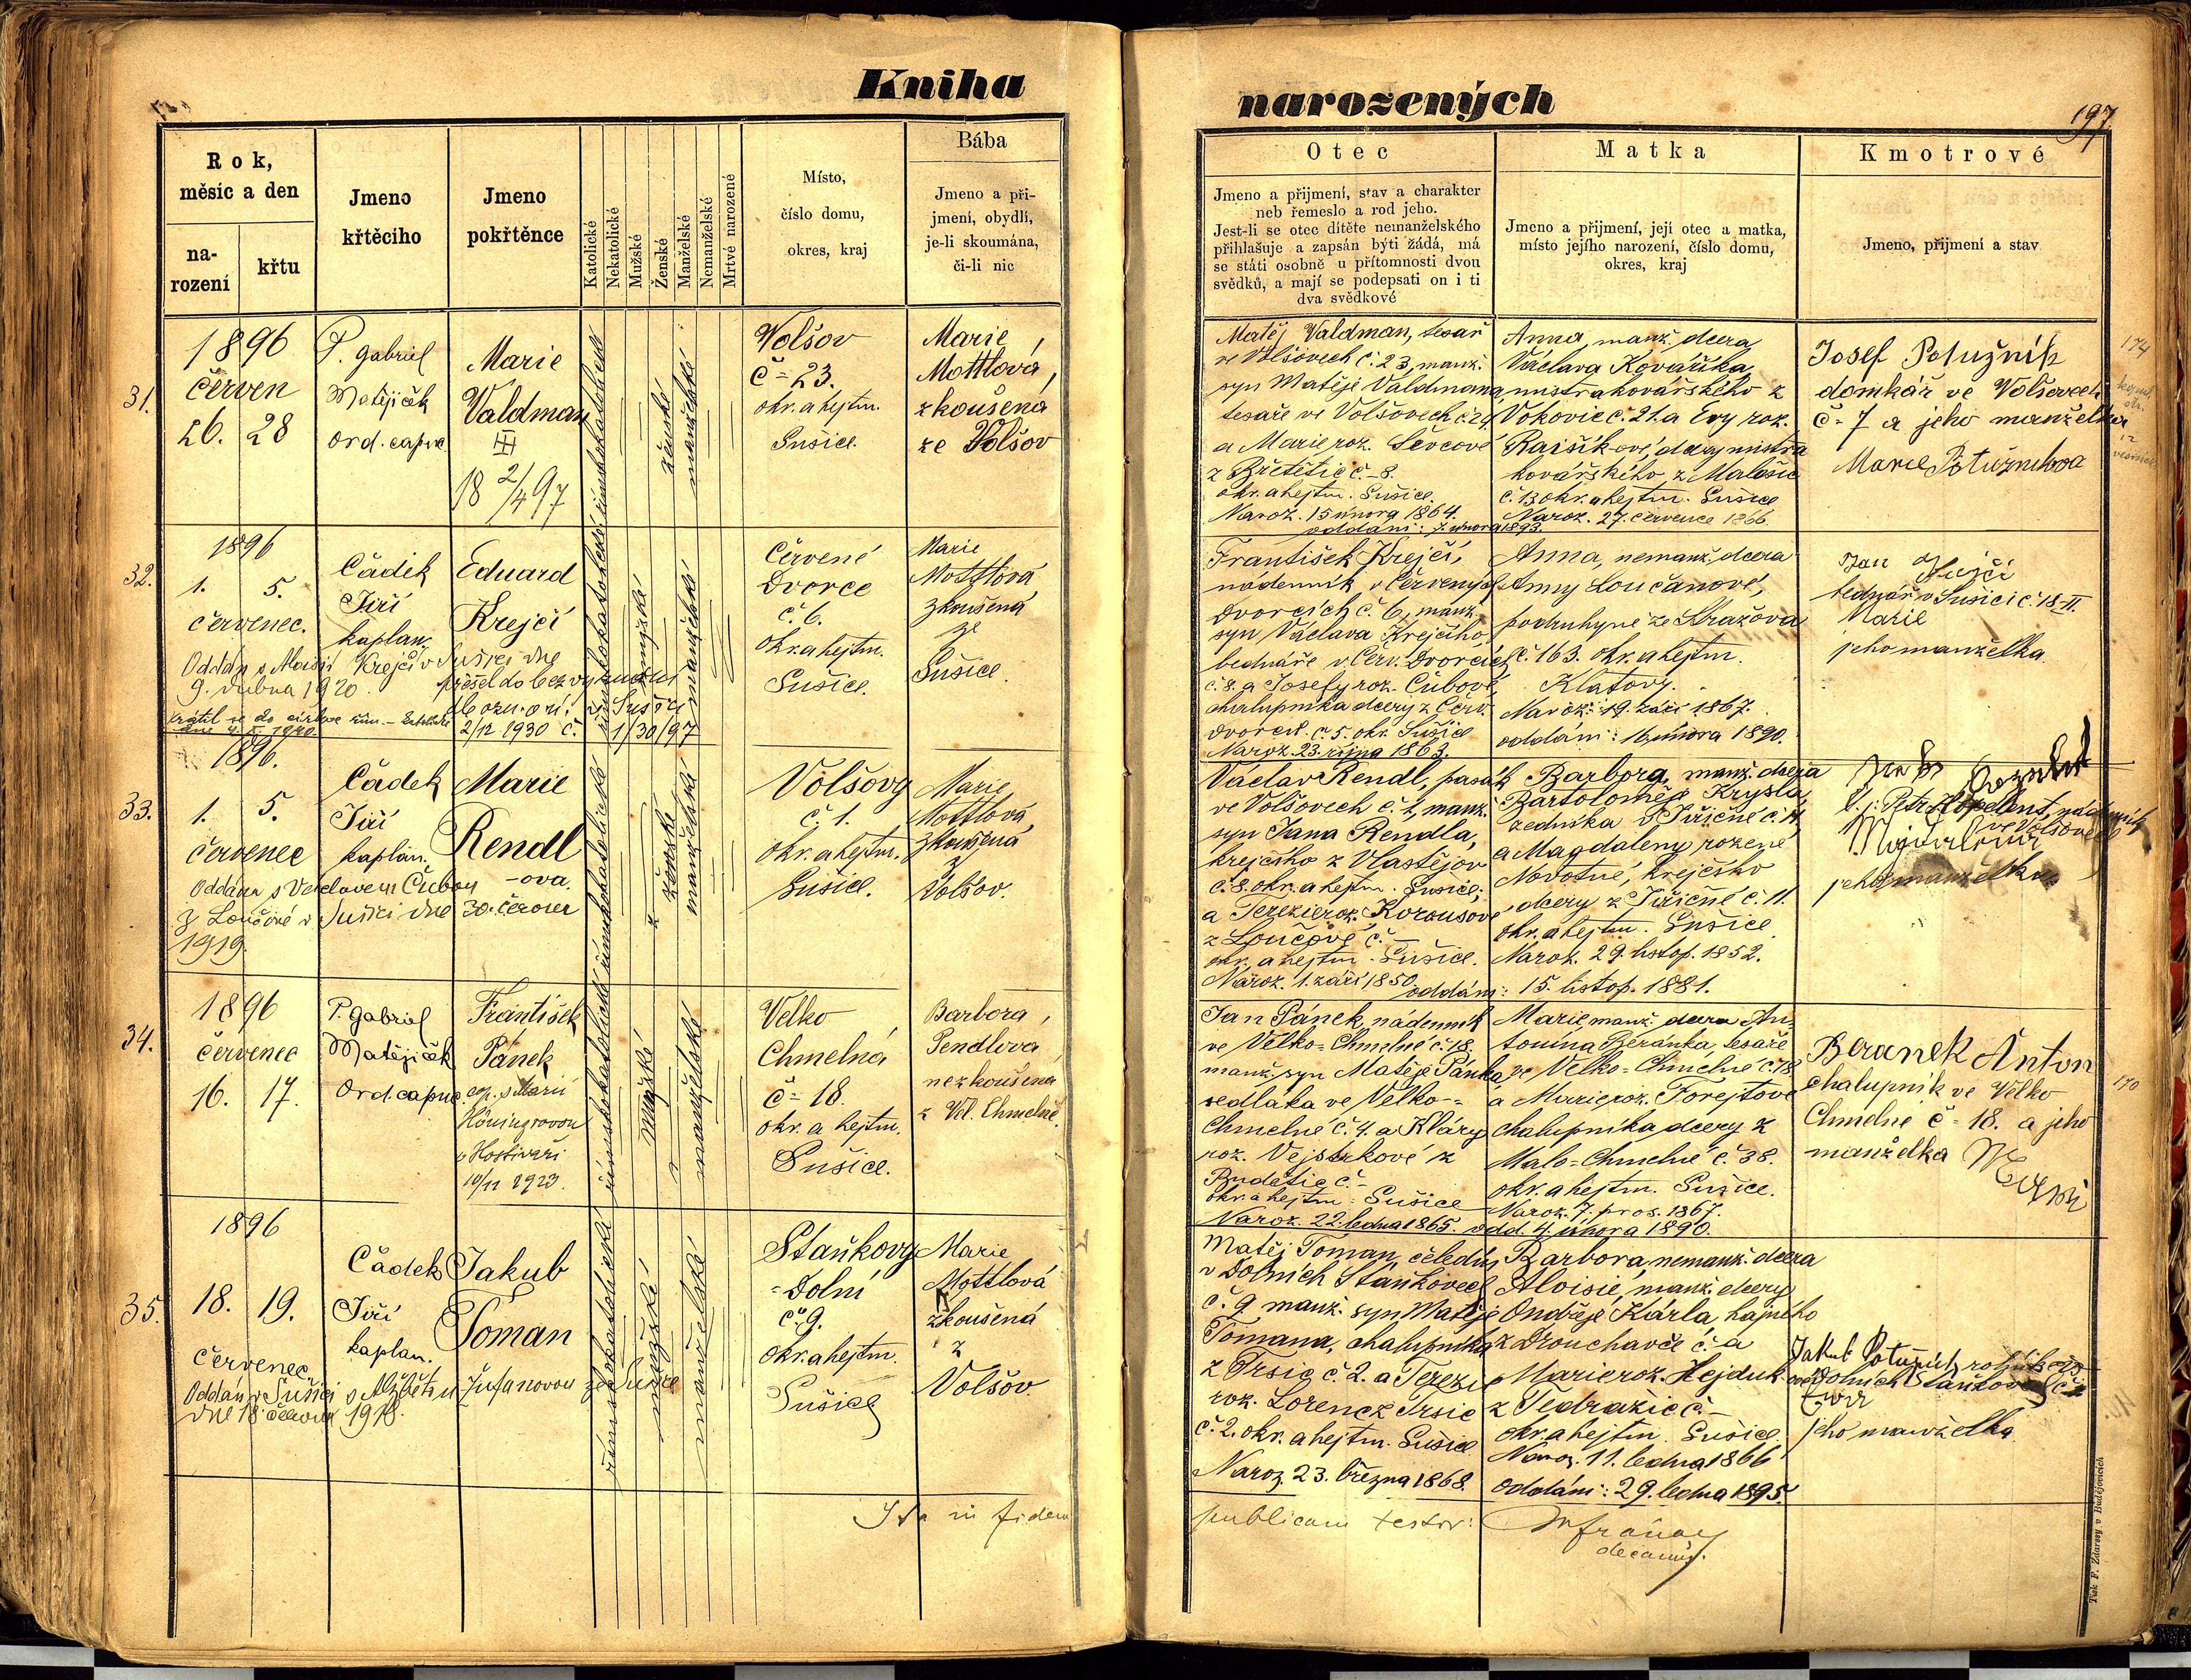 Kniha
narozených
197
Rok,
měsíc a den
na-
rození
křtu
Jmeno
křtěcího
Jmeno
pokřtěnce
Katolické
Nekatolické
Mužské
Ženské
Manželské
Nemanželské
Mrtvé narozené
Místo,
číslo domu,
okres, kraj
Bába
Jmeno a při-
jmení, obydlí,
je-li skoumána,
či-li nic
Otec
Jmeno a přijmení, stav a charakter
neb řemeslo a rod jeho.
Jest-li se otec dítěte nemanželského
přihlašuje a zapsán býti žádá, má
se státi osobně u přítomnosti dvou
svědků, a mají se podepsati on i ti
dva svědkové
Matka
Jmeno a přijmení, její otec a matka,
místo jejího narození, číslo domu,
okres, kraj
Kmotrové
Jmeno, přijmení a stav
31.
1896
červen
26. 28
P. Gabriel
Matějiček
Ord. capuc.
Marie
Valdman
18 2/4 97
římskokatolické
ženské
manželské
Wolšov
č = 23.
okr. a hejtm.
Sušice
Marie
Mottlová,
zkoušená
ze Volšov
Matěj Valdman, tesař
ve Volšovech č. 23, manž.
syn Matěje Valdmana
tesaře ve Volšovech č. 24
a Marie roz. Ševcové
z Břetětic č. 8.
okr. a hejtm. Sušice.
Naroz. 15 února 1864.
oddáni: 7. února 1893.
Anna, manž. dcera
Václava Kováříka,
mistra kovářského z
Vokovic č. 21. a Evy roz.
Raišíkové, dcery mistra
kovářského z Malešic
č. 13 okr. a hejtm. Sušice
Naroz. 27. července 1866.
Josef Potužník
domkář ve Volšovech
č = 7 a jeho manželka
Marie Potužníkova
174
32.
1896
1. 5.
červenec.
Čádek
Jiří
kaplan.
Eduard
Krejčí
Oddán s Aloisií Krejčí v Sušici dne
9. dubna 1920.
přešel do bez vyznání
dle ozn. ori. v Sušici
2/12 1930 č. 1/30/97
římskokatolické
mužské
manželské
Červené
Dvorce
č. 6.
okr. a hejtm.
Sušice.
Marie
Mottlová
zkoušená
ze
Sušice.
František Krejčí,
nádenník v Červených
Dvorcích č. 6, manž.
syn Václava Krejčího
bednáře v Červ. Dvorcích
č. 8. a Josefy roz. Čubové,
chalupníka dcery z Červ.
Dvorců č. 5. okr. Sušice
Naroz. 23. října 1863.
Anna, nemanž. dcera
Anny Loučanové,
podruhyně ze Strážova
č. 163. okr. a hejtm.
Klatovy.
Naroz. 19. září 1867.
oddáni: 16 února 1890.
Jan Krejčí
bednář v Sušici č. 18-II.
Marie
jeho manželka
33.
1896.
1. 5.
červenec
Čádek
Jiří
kaplan.
Marie
Rendl
-ova.
Oddána s Václavem Čubou
z Loučové v Sušici dne 30. červen
1919.
římskokatolické
ženské
manželské
Volšovy
č. 1.
okr. a hejtm.
Sušice.
Marie
Mottlová
zkoušená
z
Volšov.
Václav Rendl, pasák
ve Volšovech č. 1, manž.
syn Jana Rendla,
krejčího z Vlastějov
č. 8. okr. a hejtm. Sušice,
a Terezie roz. Korousové
z Loučové č. —
okr. a hejtm. Sušice.
Naroz. 1. září 1850.
oddáni: 15. listop. 1881.
Barbora, manž. dcera
Bartoloměje Krysla,
zedníka v Jiřičné č. 14,
a Magdaleny rozené
Novotné, krejčího
dcery z Jiřičné č. 11.
okr. a hejtm. Sušice
Naroz. 29. listop. 1852.
t. j. Petr Kopelent, nádenník
ve Volšovech
jeho manželka
34.
1896
červenec
16. 17.
P. Gabriel
Matějiček
Ord. capuc.
František
Pánek
cop. s Marií
v Hostivaři
10/11 1923.
římskokatolické
mužské
manželské
Velko
Chmelná
č = 18.
okr. a hejtm.
Sušice.
Barbora,
Pendlova
nezkoušena
z Vel. Chmelné.
Jan Pánek, nádenník
ve Velko-Chmelné č. 18
manž. syn Matěje Pánka,
sedláka ve Velko-
Chmelné č. 4. a Kláry
roz. Vejstrkové z
Budětic č. -
okr. a hejtm. Sušice
Naroz. 22. ledna 1865. odd. 4. února 1890.
Marie, manž. dcera An-
tonína Beránka, tesaře
ve Velko-Chmelné č. 18
a Marie roz. Forejtové
chalupníka dcery z
Malo-Chmelné č. 38.
okr. a hejtm. Sušice.
Naroz. 7. pros. 1867.
Beranek Anton
chalupník ve Velko
Chmelné č = 18. a jeho
manželka
170
35.
1896
18. 19.
červenec
Čádek
Jiří
kaplan.
Jakub
Toman
Oddán v Sušici s Alžbětou Žufanovou ze Sušice
dne 18. června 1918.
římskokatolické
mužské
manželské
Staňkovy
-Dolní
č. 9.
okr. a hejtm.
Sušice
Marie
Mottlová
zkoušená
z
Volšov
Matěj Toman, čeledín
v Dolních Staňkovech
č. 9 manž. syn Matěje
Tomana, chalupníka
z Trsic č. 2. a Terezie
roz. Lorenc z Trsic
č. 2. okr. a hejtm. Sušice
Naroz. 23. března 1868.
Barbora, nemanž. dcera
Aloisie, manž. dcery
Ondřeje Kárla, hajného
z Drouchavče č. a
Marie roz. Hejduk
z Tedražic č. -
okr. a hejtm. Sušice
Naroz. 11. ledna 1866
oddáni: 29. ledna 1895.
Jakub Potužník, rolník
v Dolních Staňkovech č. 2
Eva
jeho manželka
Ita in fidem
publicam testor:
decanus.
Tisk F. Zdarssy, v Budějovicích